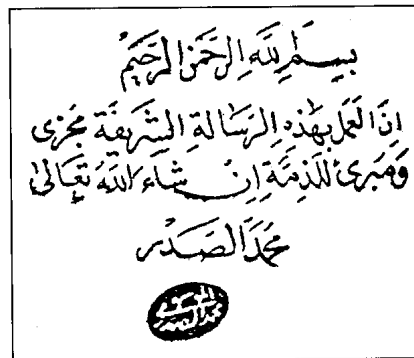 بِسْمِ اللهِ الرَّحْمٰنِ الرَّحِيْمِ
اِنَّ العَمَلَ بِهٰذِهِ الرِّسَالَةِ الشَّرِيفَةِ مُجْزِى
وَمُبْرِئٌ لِلذِمَّةِ اِنْ شَاءَ اللهُ تَعَالىٰ
مُحَمَّد الصَّدْر
الموسوي
محمد الصدر